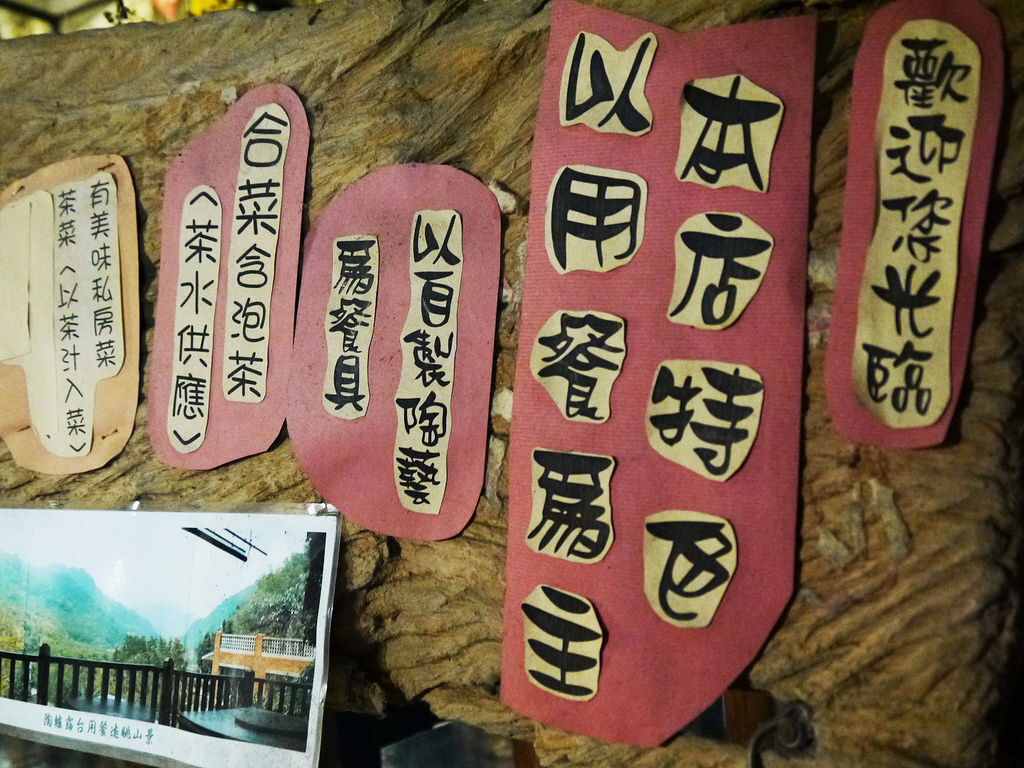 歡迎你光臨
本店特色
以用餐為主
以自製陶藝
為餐具
合菜含泡茶
〈茶水供應〉
有美味私房菜
茶菜〈以茶汁入菜〉
陶爐露台用餐遠眺山景